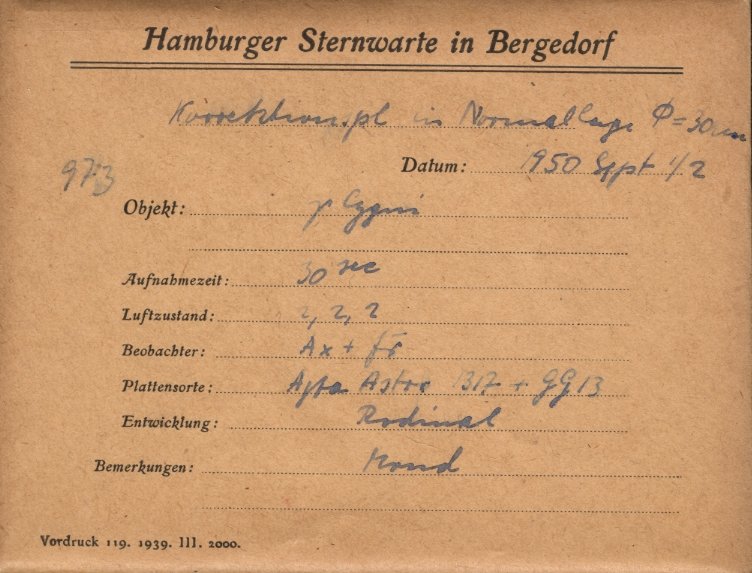 Hamburger Sternwarte in Bergedorf
Korrektionspl in Normallage Φ = 30cm
973
Datum: 1950 Sept 1/2
Objekt: γ Cygni
Aufnahmezeit: 30 sec
Luftzustand: 2, 2, 2
Beobachter: Ax +
Plattensorte: Agfa Astro + GG 13
Entwicklung: Rodinal
Bemerkungen: Mond
Vordruck 119. 1939. III. 2000.